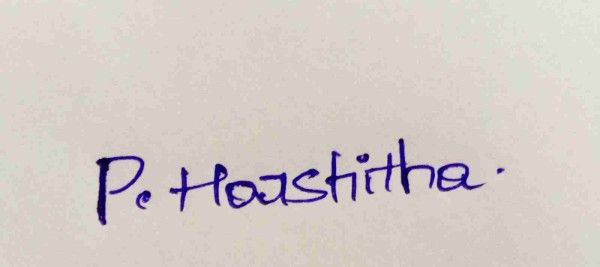 P. Harshitha.